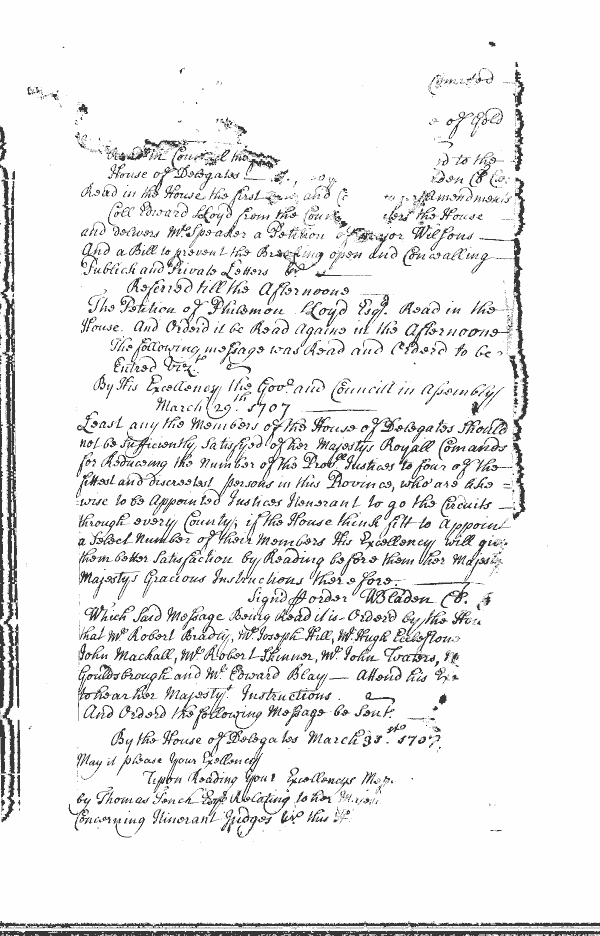 Comitted
e of Gold
Read in Councill the nd to the
House of Delegates den Cl Co:
Read in the House the first and Amendments
Coll Edward Lloyd from the Coun the House
and delivers Mr Speaker a Petition of Major Wilsons
And a Bill to prevent the Breaking open and Concealling
Publick and Private Letters &c
Referred till the Afternoone
The Petition of Philemon Lloyd Esqr. Read in the
House. And Orderd it be Read Againe in the Afternoone
The following message was Read and Orderd to be
Entred Vizt.
By His Excellency the Govr. and Councill in Assembly
March 29th. 1707
Least any the Members of the House of Delegates Should
not be Sufficiently Satisfyed of her Majestys Royall Comands
for Reducing the Number of the Provll Justices to four of the
fittest and discreetest persons in this Province, who are like =
wise to be Appointed Justices Itinerant to go the Circuits
through every County; if the House think fitt to Appoint
a Select Number of their Members His Excellency will give
them better Satisfaction by Reading before them her Majesty
Majestys Gracious Instructions therefore.
Signd p order WBladen Cl.
Which Said Message Being Read it is Orderd by the Hou
that Mr Robert Bradly, Mr Joseph Hill, Mr Hugh Eccleston
John Mackall, Mr Robert Skinner, Mr John Waters,
Gouldsbrough and Mr Edward Blay Attend his Ex
to hear her Majestys. Instructions.
And Orderd the following Message be Sent.
By the House of Delegates March 31st. 1707.
May it please Your Exellency
Upon Reading Your Excellencys Mess
by Thomas Tench Esqr Relating to her
Concerning Itinerant Judges this